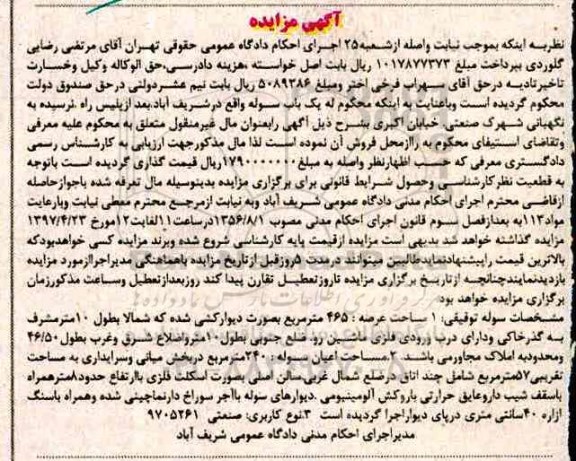 آگهی مزایده
نظربه اینکه بموجب نیابت واصله ازشعبه۲۵ اجرای احکام دادگاه عمومی حقوقی تهران آقای مرتضی رضایی
گلوردی بپرداخت مبلغ ۱۰۱۷۸۷۷۳۷۳ ریال بابت اصل خواسته ،هزینه دادرسی،حق الوکاله وکیل وخسارت
تاخیرتادیه درحق آقای سهراب فرخی اختر ومبلغ ۵۰۸۹۳۸۶ ریال بابت نیم عشردولتی درحق صندوق دولت
محکوم گردیده است وباعنایت به اینکه محکوم له یک باب سوله واقع درشریف آباد،بعدازپلیس راه ،نرسیده به
نگهبانی شهرک صنعتی خیابان اکبری بشرح ذیل آگهی رابعنوان مال غیرمنقول متعلق به محکوم علیه معرفی
وتقاضای استیفای محکوم به راازمحل فروش آن نموده است لذا مال مذکورجهت ارزیابی به کارشناس رسمی
دادگستری معرفی که حسب اظهارنظر واصله به مبلغ۱۷۹۰۰۰۰۰۰۰ریال قیمت گذاری گردیده است باتوجه
به قطعیت نظرکارشناسی وحصول شرایط قانونی برای برگزاری مزایده بدینوسیله مال تعرفه شده باجوازحاصله
ازقاضی محترم اجرای احکام مدنی دادگاه عمومی شریف آباد وبه نیابت ازمرجع محترم معطی نیابت وبارعایت
مواد۱۱۳به بعدازفصل سوم قانون اجرای احکام مدنی مصوب ۱۳۵۶/۸/۱درساعت۱۱لغایت۱۲مورخ ۱۳۹۷/۴/۲۳
مزایده گذاشته خواهد شد بدیهی است مزایده ازقیمت پایه کارشناسی شروع شده وبرنده مزایده کسی خواهدبودکه
بالاترین قیمت راپیشنهادنمایدطالبین میتوانند درمدت ۵روزقبل ازتاریخ مزایده باهماهنگی مدیراجراازمورد مزایده
بازدیدنمایندچنانچه ازتاریخ برگزاری مزایده تاروزتعطیل تقارن پیدا کند روزبعدازتعطیل وساعت مذکورزمان
برگزاری مزایده خواهد بود
مشخصات سوله توقیفی: ۱ مساحت عرصه : ۴۶۵ مترمربع بصورت دیوارکشی شده که شمالا بطول ۱۰مترمشرف
به گذرخاکی ودارای درب ورودی فلزی ماشین رو، ضلع جنوبی بطول۱۰متر واضلاع شرق وغرب بطول ۴۶/۵۰
ومحدوبه املاک مجاورمی باشد. ۲.مساحت اعیان سوله : ۲۴۰مترمربع دربخش میانی وسرایداری به مساحت
تقریبی۵۷مترمربع شامل چند اتاق درضلع شمال غربی،سالن اصلی بصورت اسکلت فلزی باارتفاع حدود۸مترهمراه
باسقف شیب داروعایق حرارتی باروکش آلومینیومی .دیوارهای سوله باآجر سوراخ دارنماچینی شده وهمراه باسنگ
ازاره ۴۰سانتی متری درپای دیواراجرا گردیده است ۳.نوع کاربری: صنعتی ۹۷۰۵۲۶۱
مدیراجرای احکام مدنی دادگاه عمومی شریف آباد